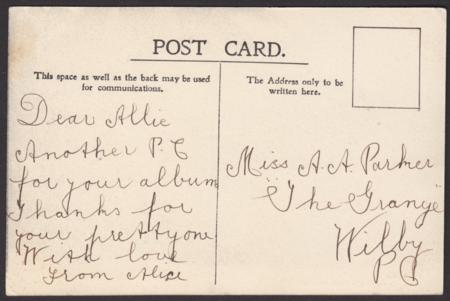 POST CARD.
This space as well as the back may be used
for communications.
The Address only to be
written here.
Dear Allie
Another P.C
for your album
Thanks for
your pretty one
With love
From Alice
Miss A. A. Parker
"The Grange"
Wilby